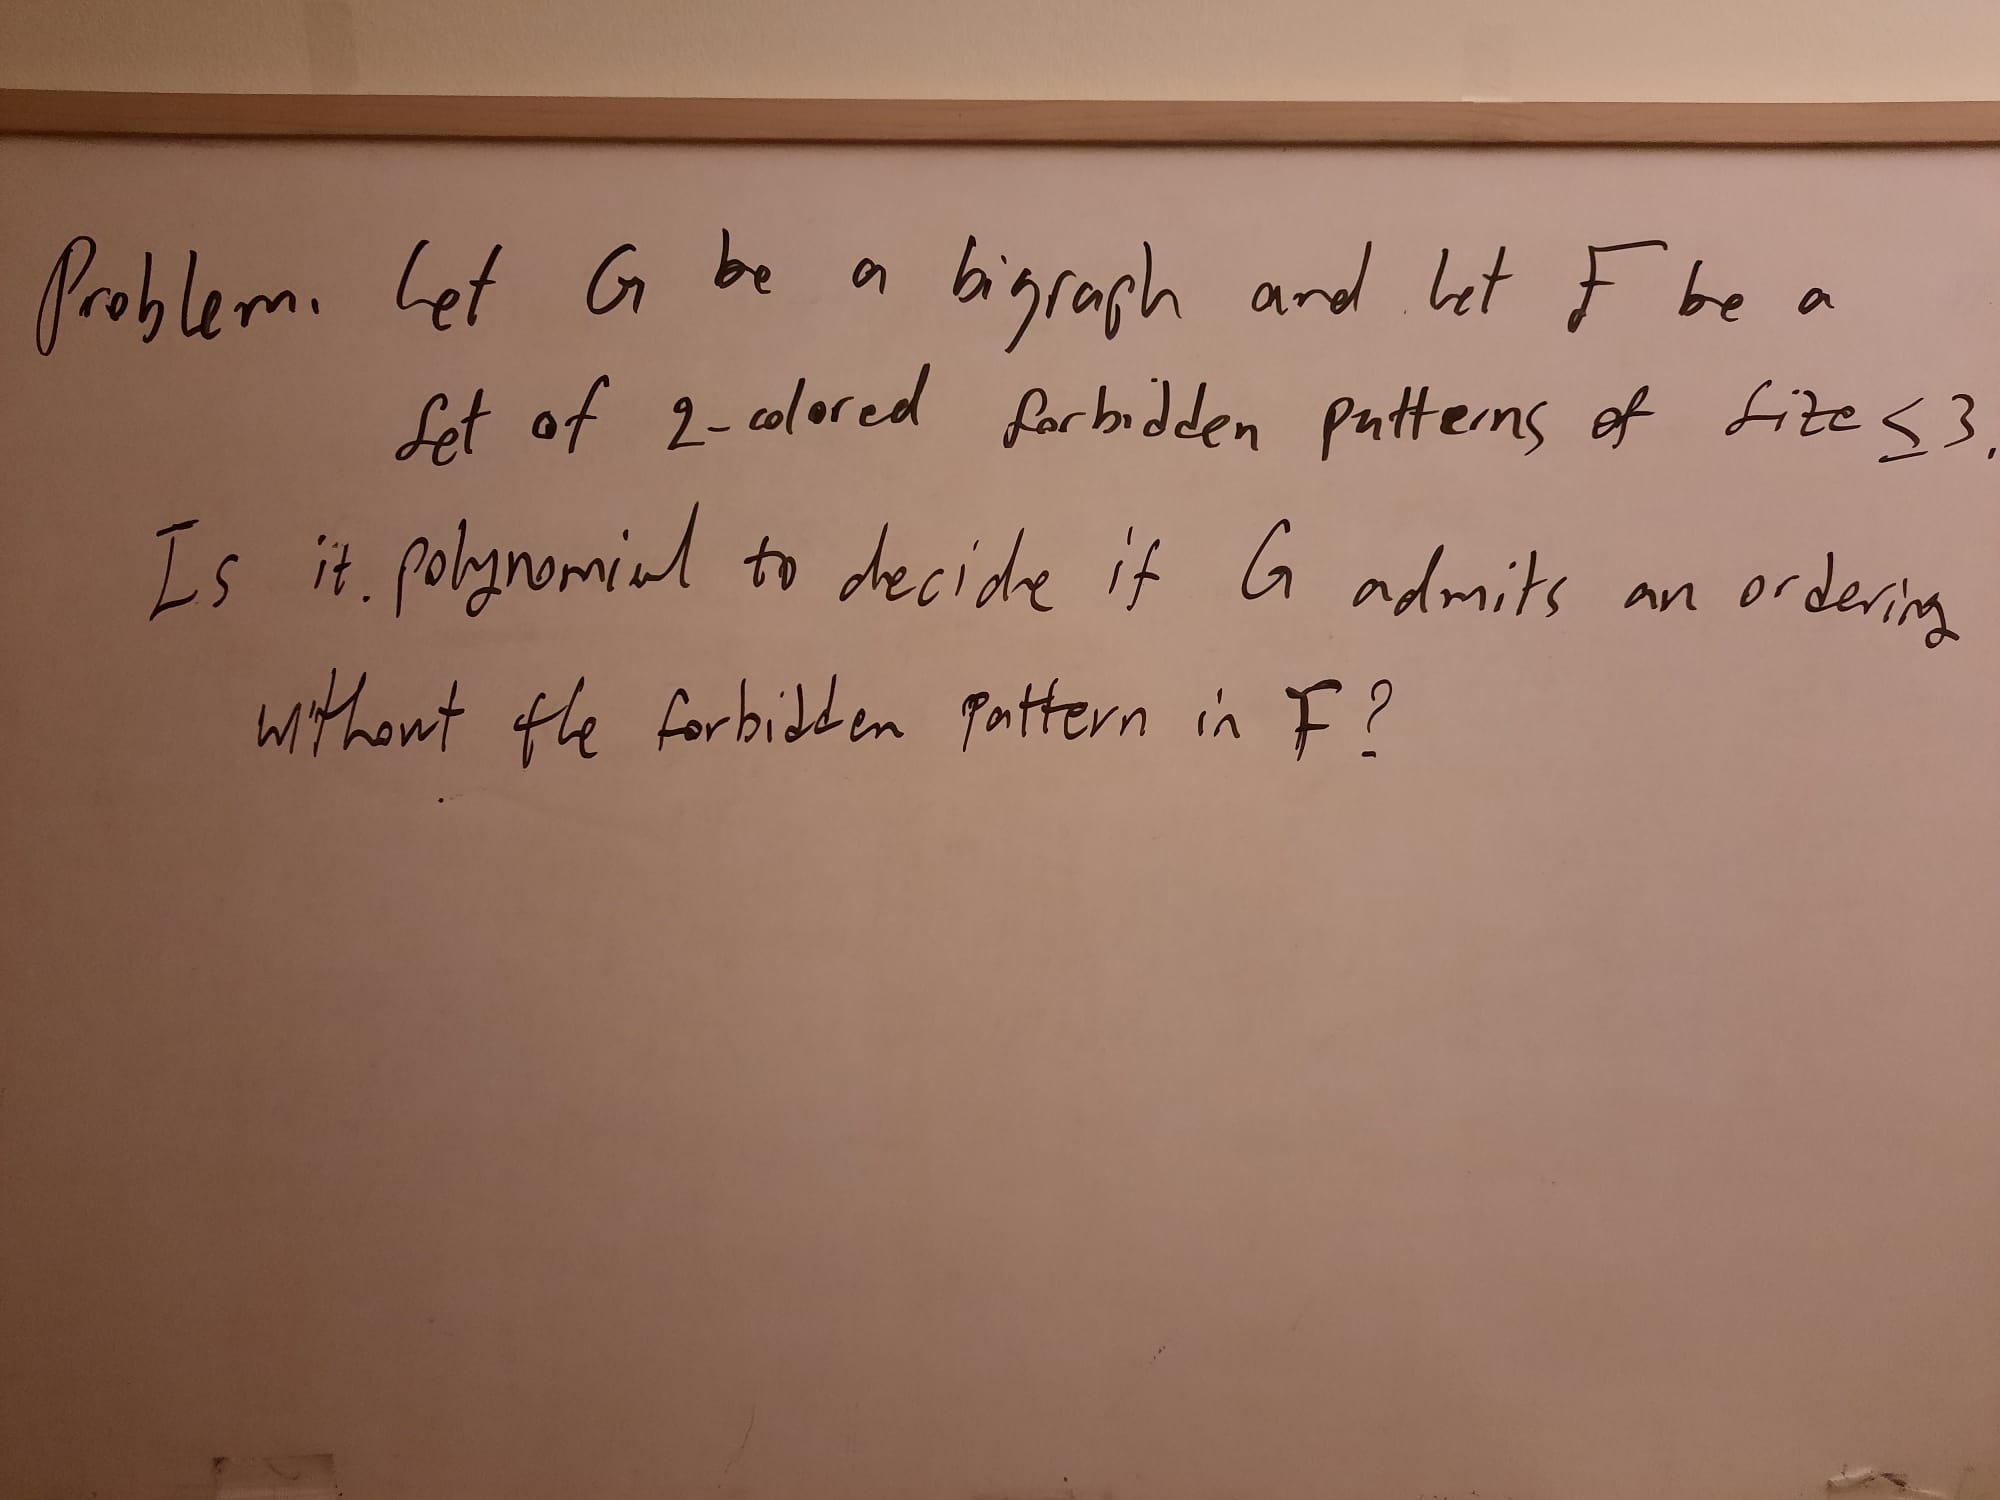 Problem. Let G be a bigraph and let F be a
set of 2-colored forbidden patterns of size ≤ 3.
Is it polynomial to decide if G admits an ordering
without the forbidden pattern in F?